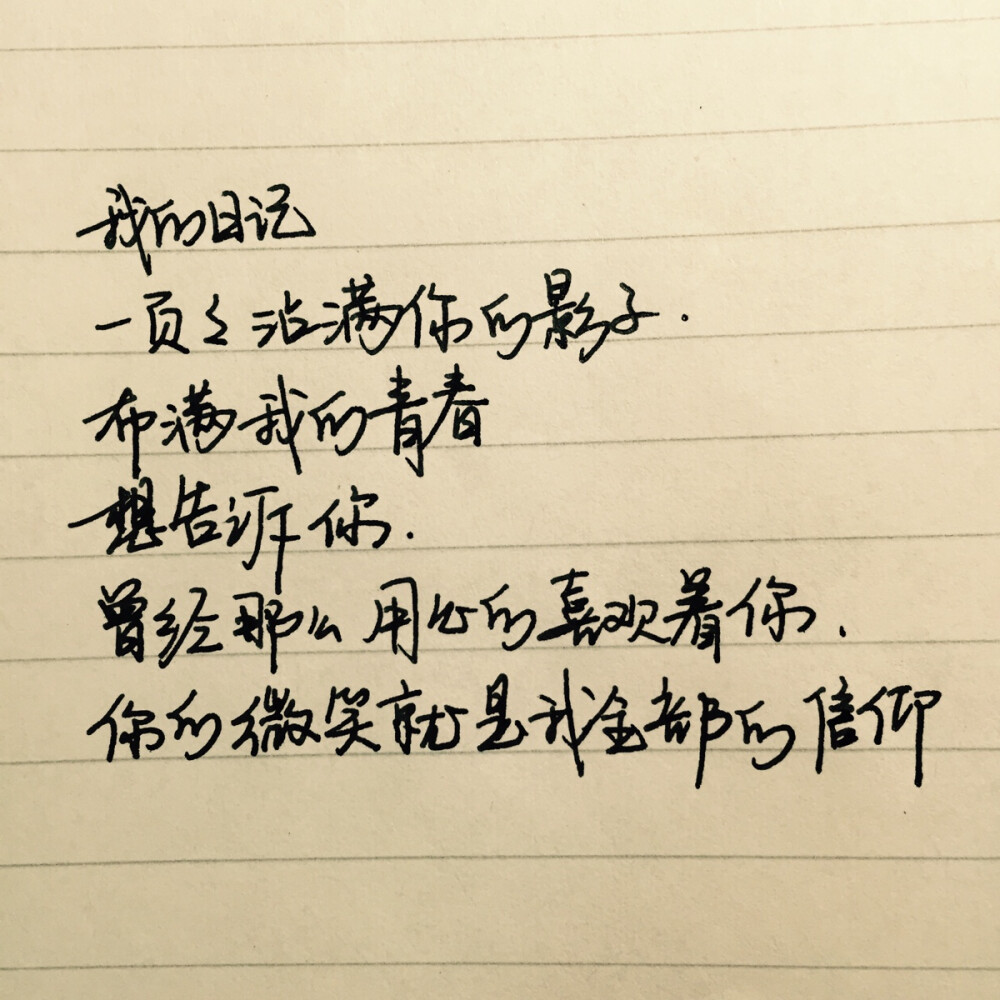 我的日记
一页々沾满你的影子.
布满我的青春
想告诉你.
曾经那么用心的喜欢着你、
你的微笑就是我全部的信仰